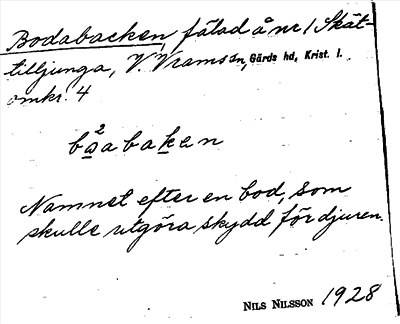 Bodabacken, fälad å nr 1 Skät-
tilljunga, V. Vrams sn, Gärds hd, Krist. l.
omkr. 4
b²oabaken
Namnet efter en bod, som
skulle utgöra skydd för djuren.
NILS NILSSON 1928